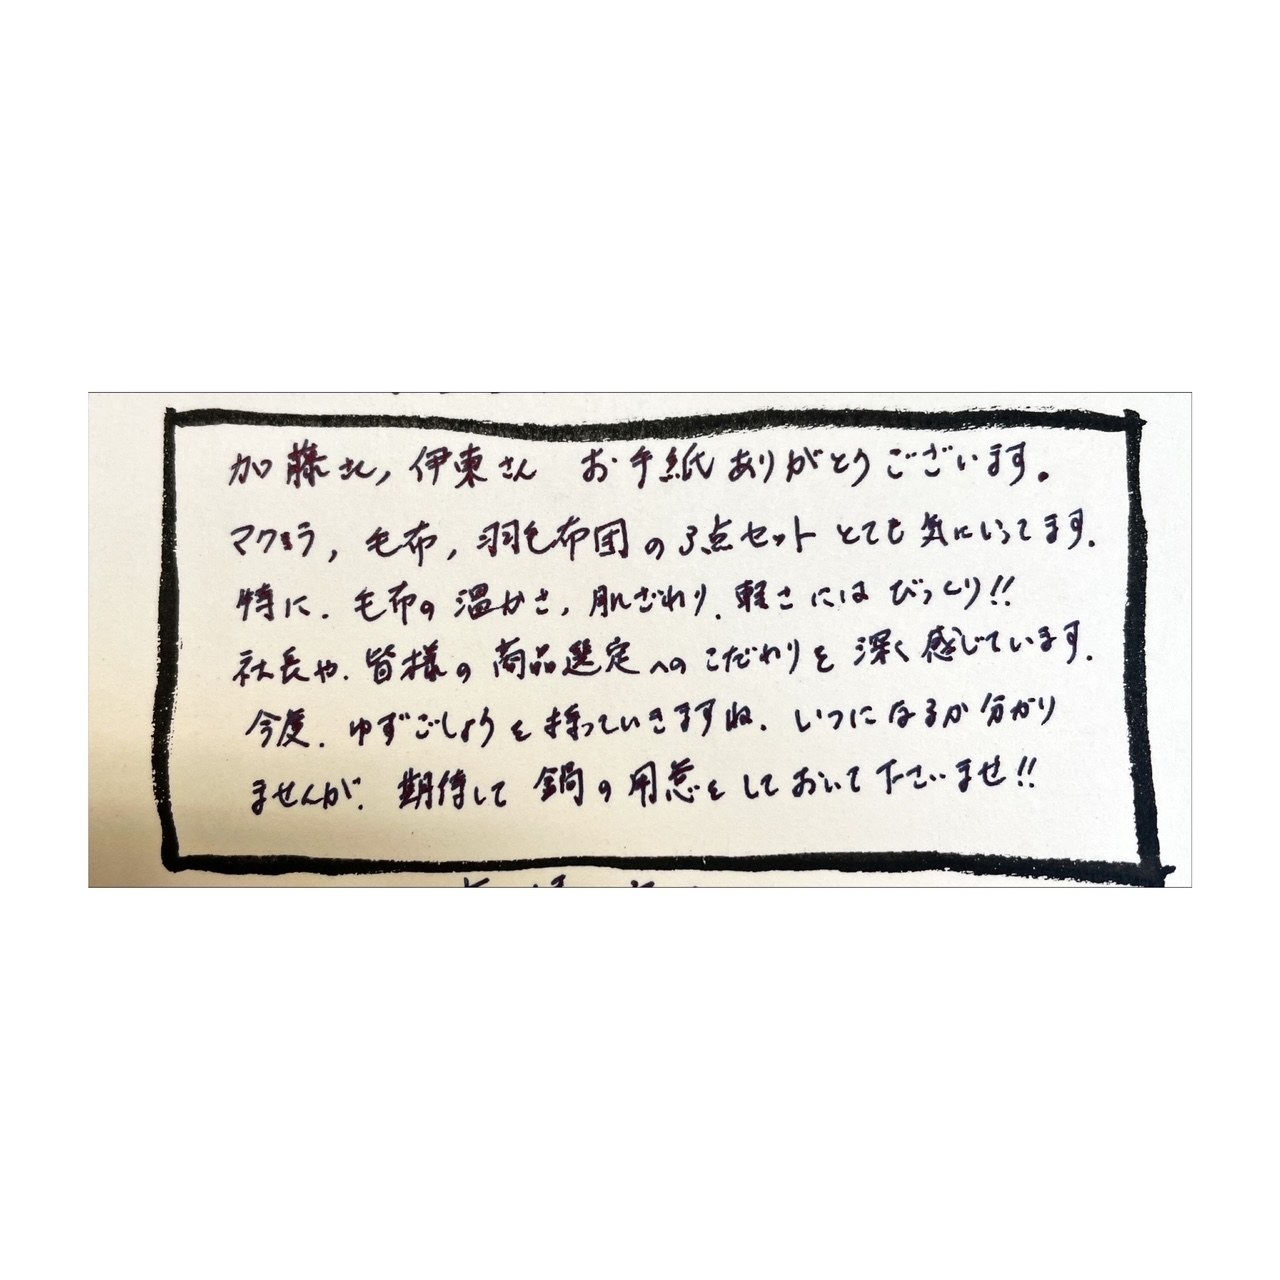 加藤さん,伊東さん お手紙ありがとうございます。
マクラ,毛布,羽毛布団の3点セットとても気にいってます.
特に.毛布の温かさ,肌ざわり.軽さにはびっくり!!
社長や.皆様の商品選定へのこだわりを深く感じています.
今度.ゆずごしょうを持っていきますね.いつになるか分かり
ませんが.期待して鍋の用意をしておいて下さいませ!!